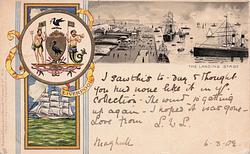 THE LANDING STAGE
LIVERPOOL
I saw this to-day & thought
you had none like it in yr
collection - The wind is getting
up again - I hoped it was gone -
Love from L.L.
Maghull 6-3-02